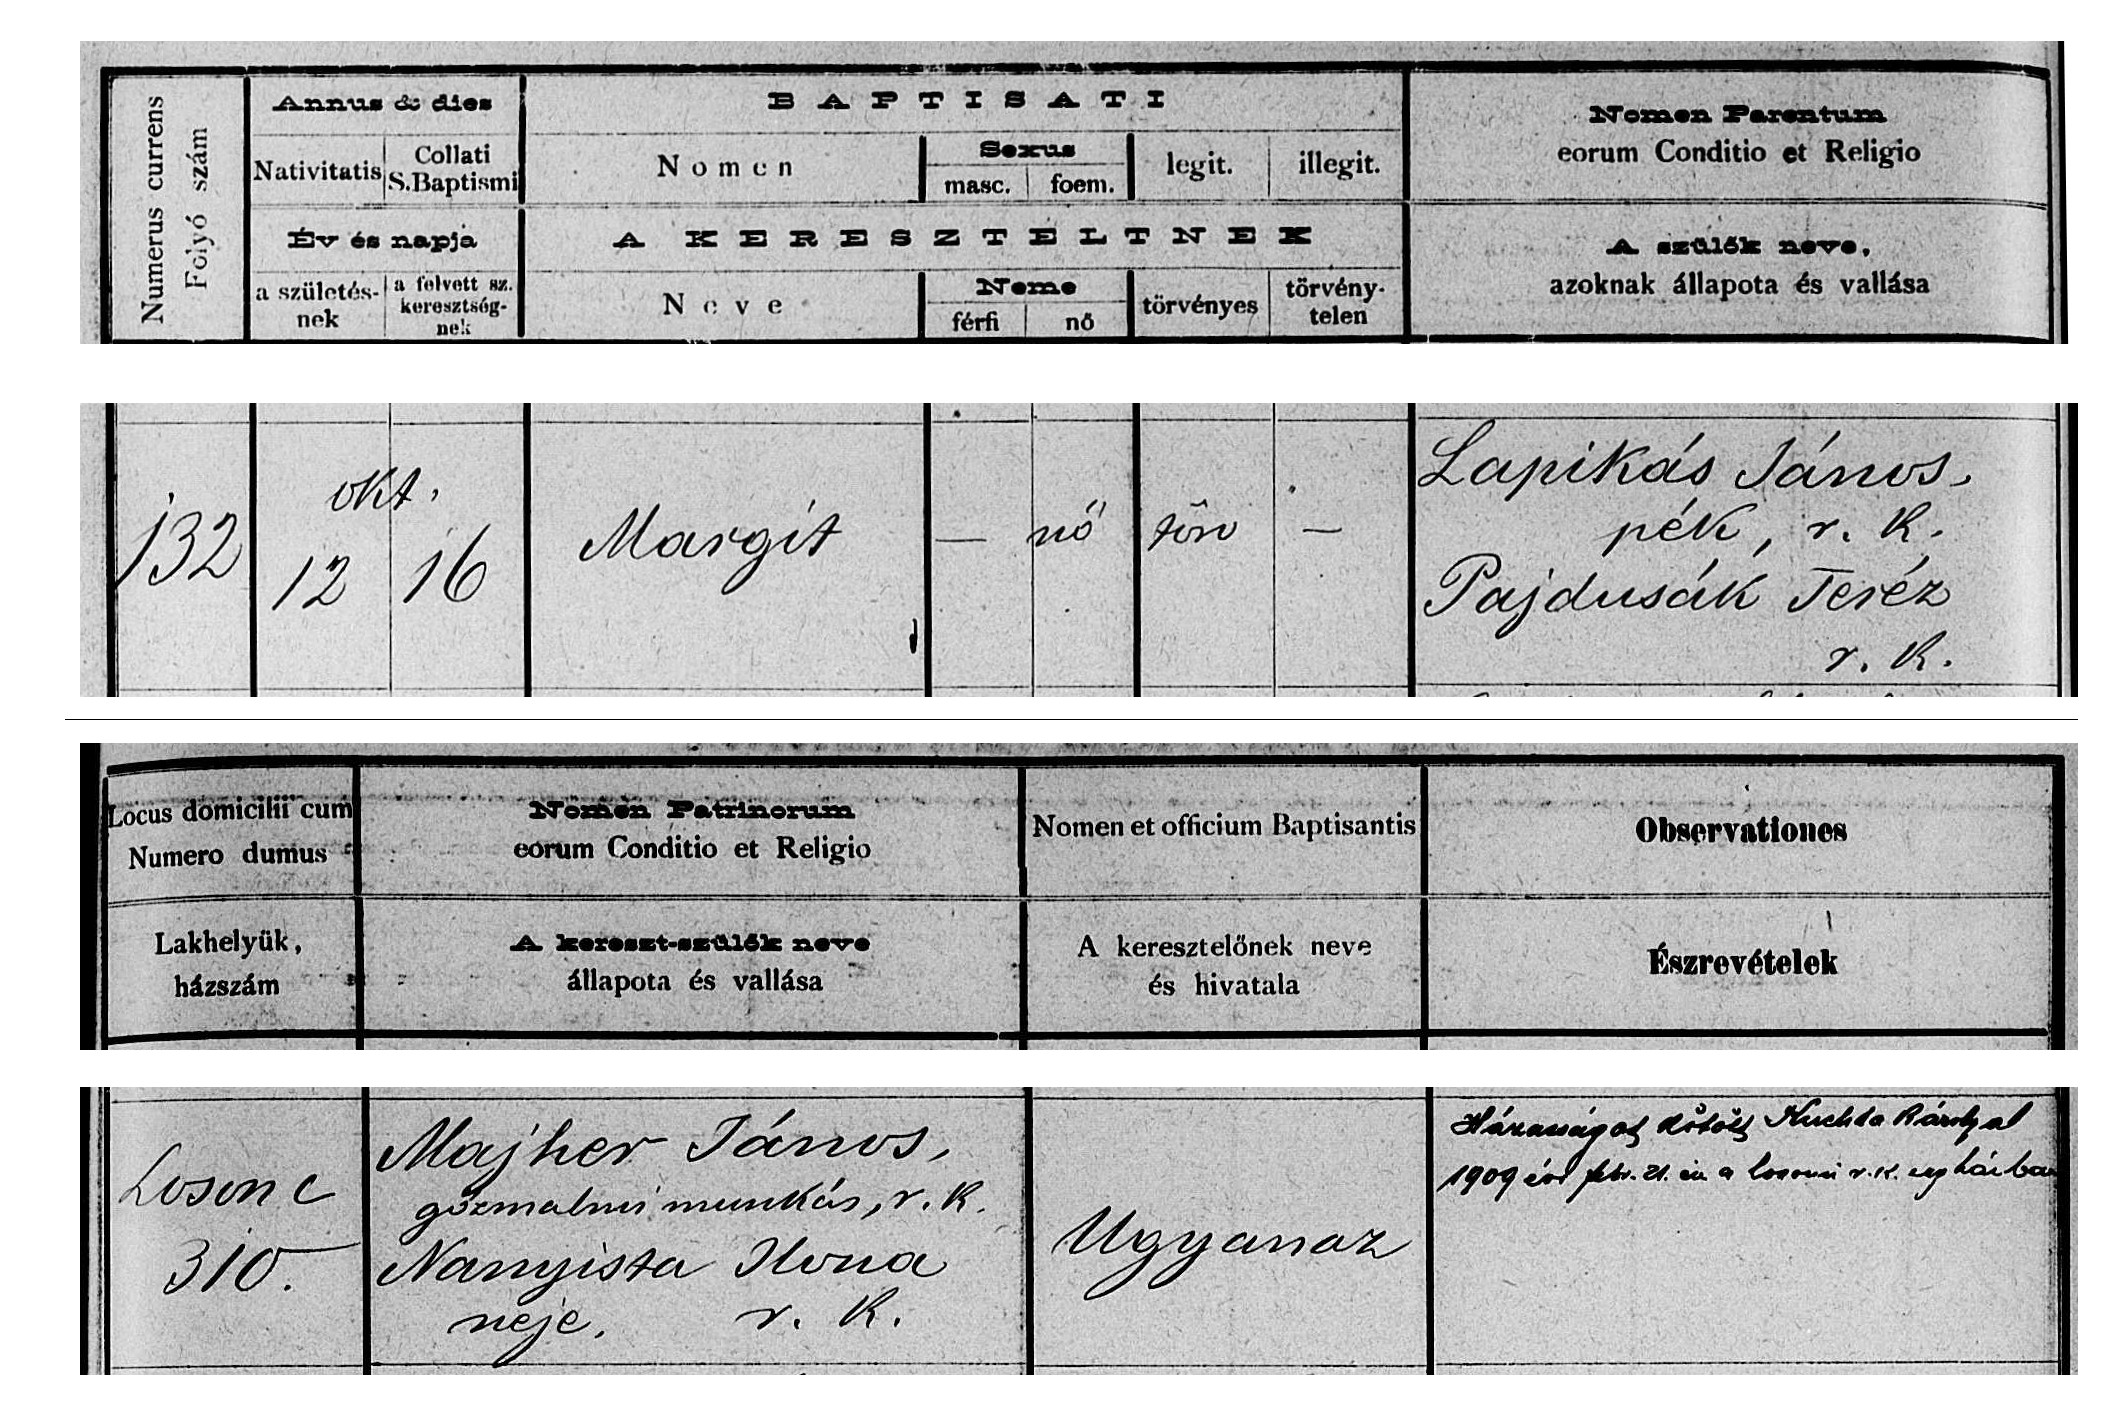 Numerus currens
Folyó szám
Annus & dies
Nativitatis
Collati
S.Baptismi
Év és napja
a születés-
nek
a felvett sz.
keresztség-
nek
BAPTISATI
Nomen
Sexus
masc.
foem.
legit.
illegit.
A KERESZTELTNEK
Neve
Neme
férfi
nő
törvényes
törvény-
telen
Nomen Parentum
eorum Conditio et Religio
A szülők neve,
azoknak állapota és vallása
132
okt.
12
16
Margit
—
nő
törv
—
Lapikás János,
pék, r. k.
Pajdusák Teréz
r. k.
Locus domicilii cum
Numero dumus
Lakhelyük,
házszám
Nomen Patrinorum
eorum Conditio et Religio
A kereszt-szülők neve
állapota és vallása
Nomen et officium Baptisantis
A keresztelőnek neve
és hivatala
Observationes
Észrevételek
Losonc
310.
Majher János,
gőzmalmi munkás, r. k.
Nanyista Ilona
neje. r. k.
Ugyanaz
Házasságot kötött Kuchta Károlyal
1909 évi febr. 21. én a losonci r. k. egyházban